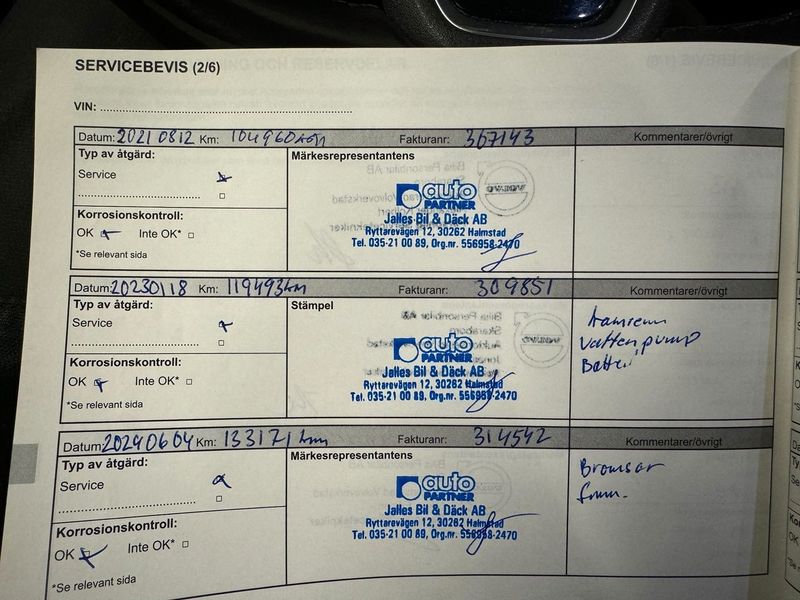 SERVICEBEVIS (2/6)
VIN:
Datum: 20210812 Km: 104960km Fakturanr: 367143 Kommentarer/övrigt
Typ av åtgärd: Märkesrepresentantens
Service
auto
PARTNER
Jalles Bil & Däck AB
Ryttarevägen 12, 30262 Halmstad
Tel. 035-21 00 89, Org.nr. 556958-2470
Korrosionskontroll:
OK Inte OK*
*Se relevant sida
Datum: 20230118 Km: 119493km Fakturanr: 309851 Kommentarer/övrigt
Typ av åtgärd: Stämpel
Service
auto
PARTNER
Jalles Bil & Däck AB
Ryttarevägen 12, 30262 Halmstad
Tel. 035-21 00 89, Org.nr. 556958-2470
Kamrem
Vattenpump
Batteri
Korrosionskontroll:
OK Inte OK*
*Se relevant sida
Datum: 20240604 Km: 133171 km Fakturanr: 314542 Kommentarer/övrigt
Typ av åtgärd: Märkesrepresentantens
Service
auto
PARTNER
Jalles Bil & Däck AB
Ryttarevägen 12, 30262 Halmstad
Tel. 035-21 00 89, Org.nr. 556958-2470
Bromsar
Korrosionskontroll:
OK Inte OK*
*Se relevant sida